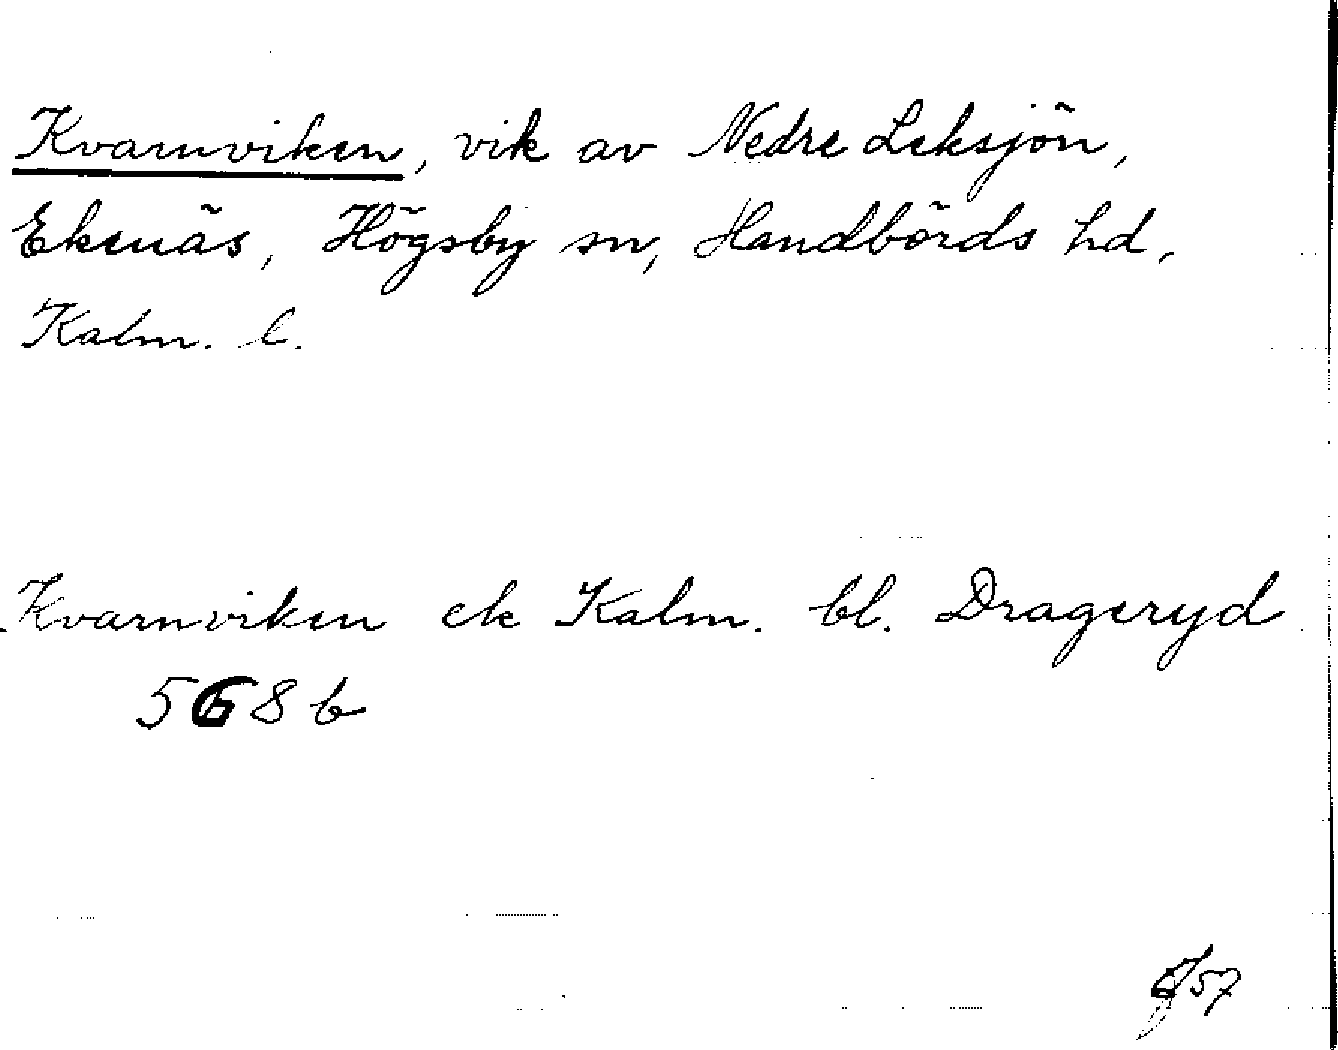 Kvarnviken, vik av Nedre Leksjön,
Ekenäs, Högsby sn, Handbörds hd,
Kalm. l.
Kvarnviken ek Kalm. bl. Drageryd
568 b
57